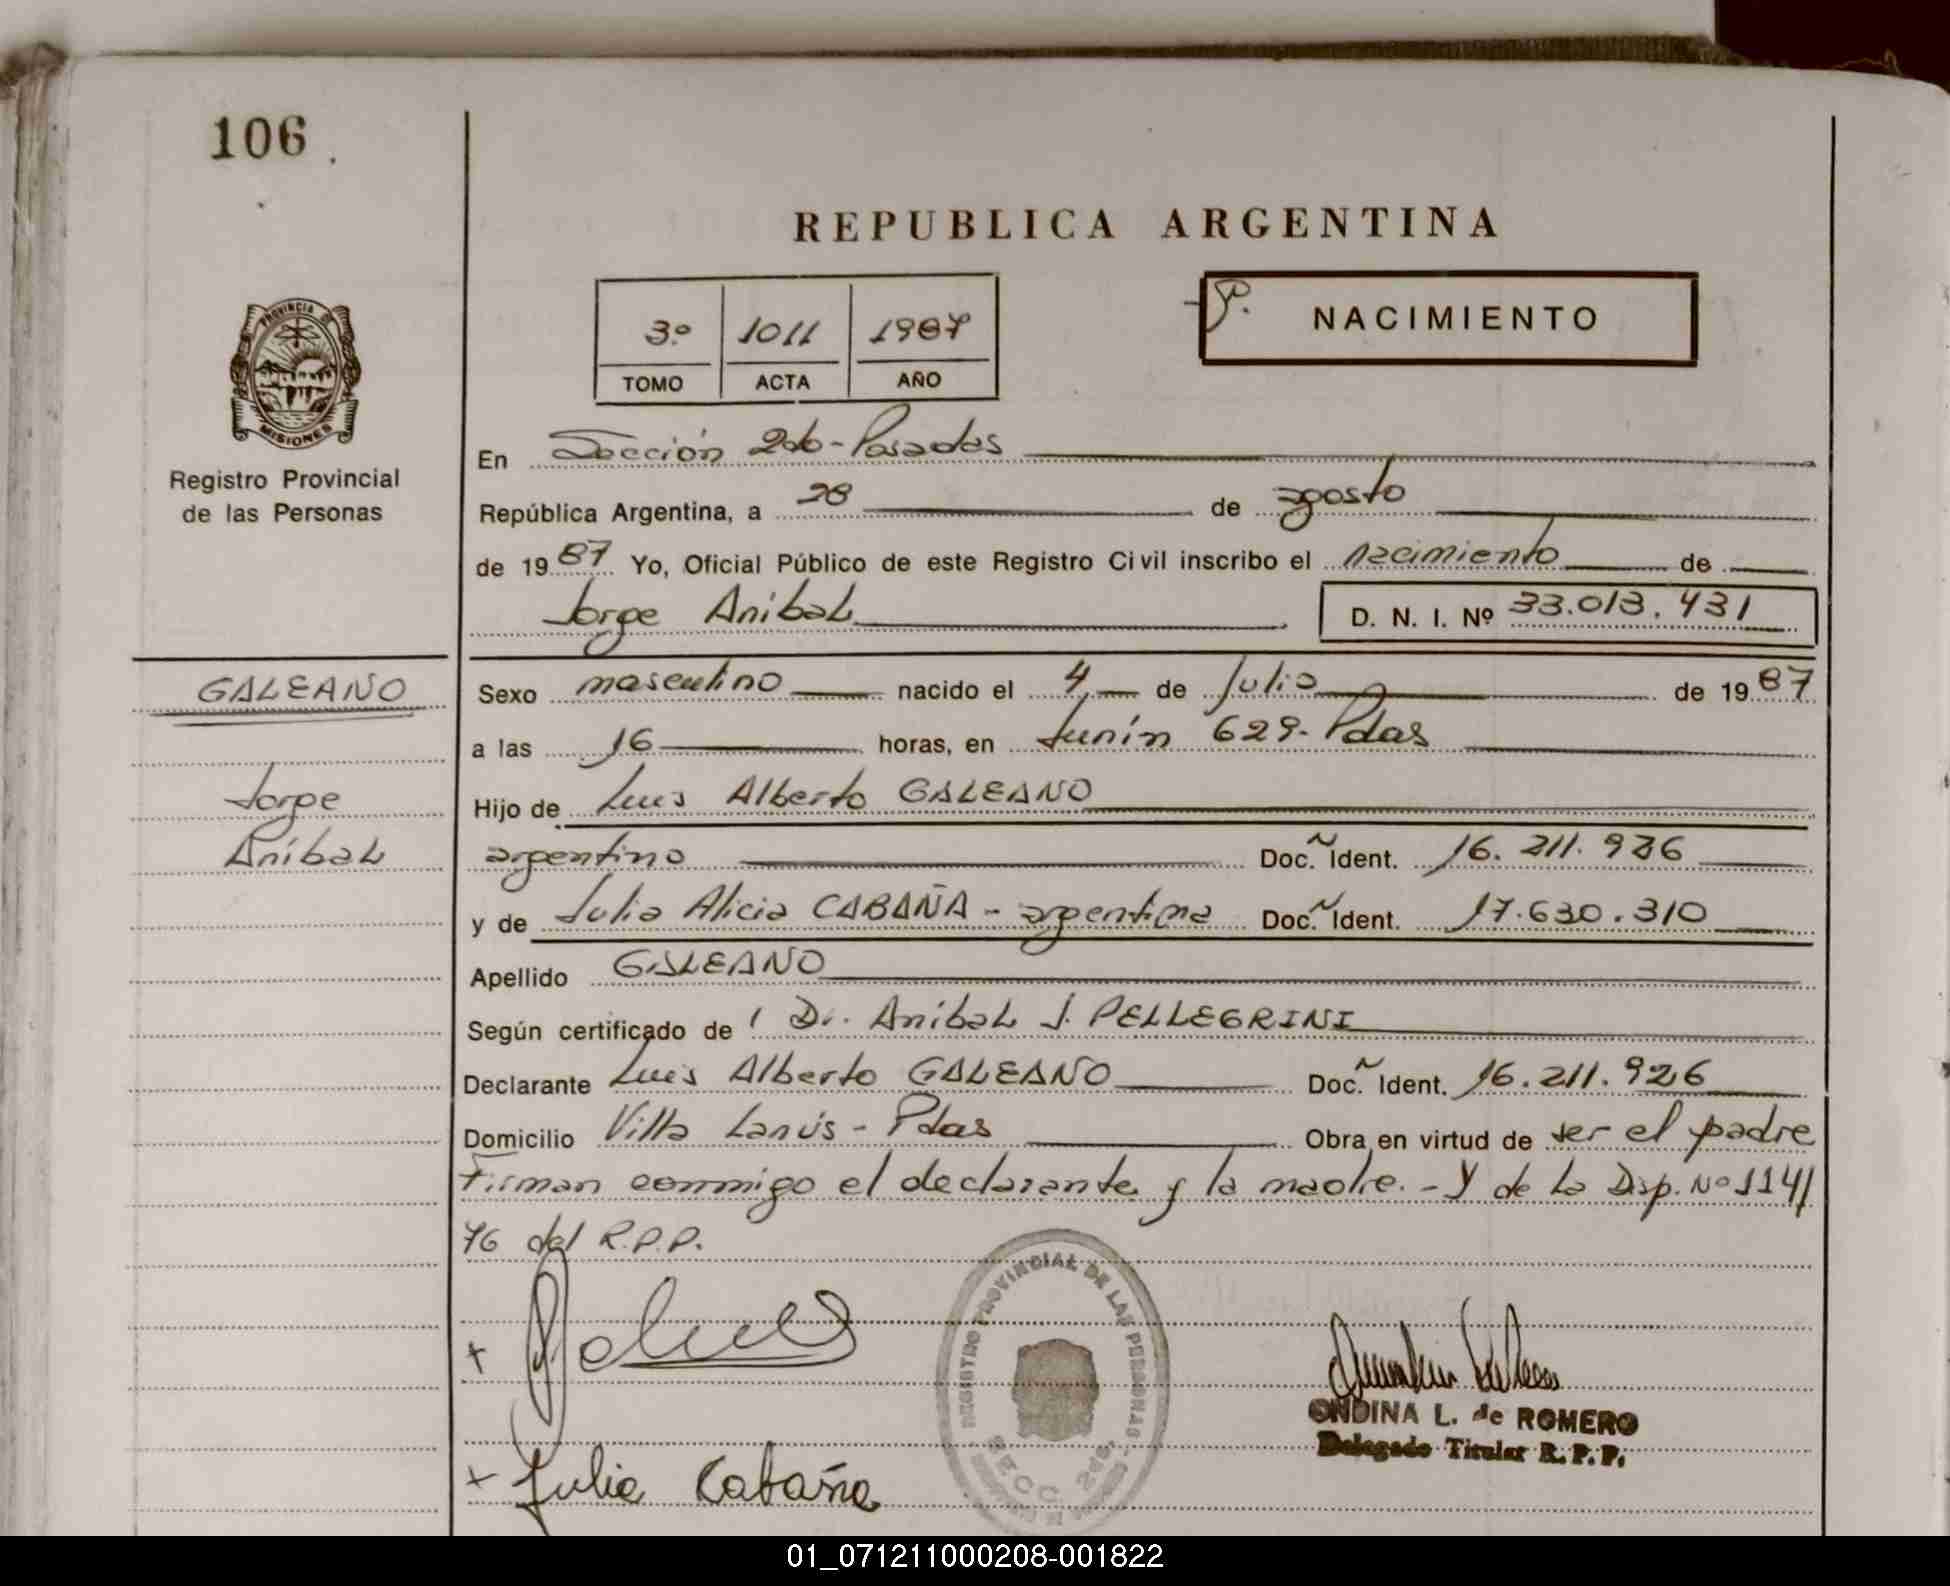 106
REPUBLICA ARGENTINA
NACIMIENTO
3º 1011 1987
TOMO ACTA AÑO
PROVINCIA D
MISIONES
Registro Provincial
de las Personas
En Sección 2da - Posadas
República Argentina, a 28 de agosto
de 1987 Yo, Oficial Público de este Registro Civil inscribo el nacimiento de
Jorge Anibal D. N. I. Nº 33.013.431
GALEANO
Jorge
Aníbal
Sexo masculino nacido el 4 de Julio de 1987
a las 16 horas, en Junín 629 - Pdas
Hijo de Luis Alberto GALEANO
argentino Doc. Ident. 16.211.926
y de Julia Alicia CABAÑA - argentina Doc. Ident. 17.630.310
Apellido GALEANO
Según certificado de Dr. Aníbal J. PELLEGRINI
Declarante Luis Alberto GALEANO Doc. Ident. 16.211.926
Domicilio Villa Lanús - Pdas Obra en virtud de ser el padre
Firman conmigo el declarante y la madre. - Y de la Disp. Nº 1141/
76 del R.P.P.
REGISTRO PROVINCIAL DE LAS PERSONAS
SECC. 2da.
ONDINA L. de ROMERO
Delegado Titular R. P. P.
+
+ Julia Cabaña
01_071211000208-001822